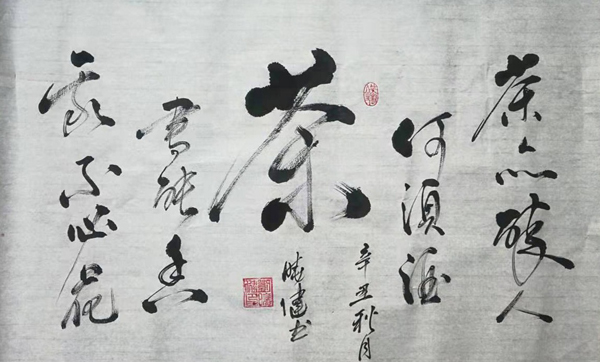 茶亦醉人
何須酒
茶
書能香
我不必花
辛丑秋月
晓健书